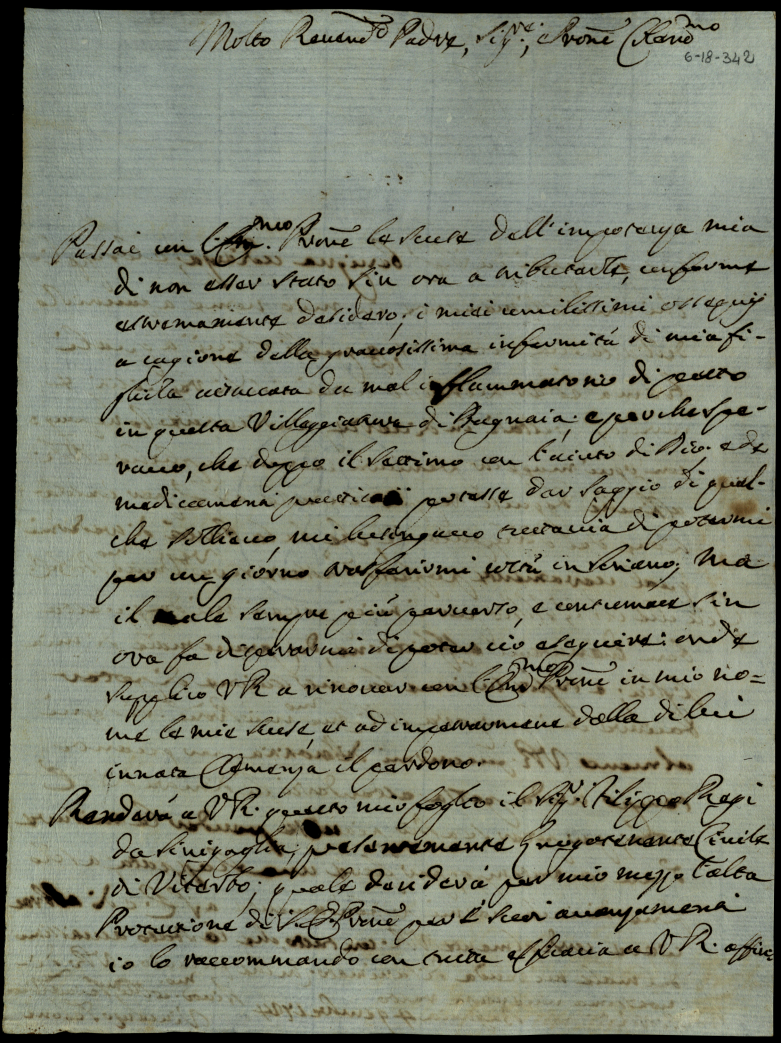 Molto Reuerend.o Padre, Sig.re, e Prone Col.mo
6-18-342
Passai con l'Em.mo Prone le scuse dell'impotenza mia
di non esser stato sin ora a tributarle, conforme
estremamente desidero, i miei umilissimi ossequij
a cagione della gravosissima infermità di mia fi-
glia attaccata da mal inflammatorio di petto
in questa Villeggiatura di Bagnaia; e perche spe-
ravo, che doppo il settimo con l'aiuto di Dio, e de
medicamenti potesse dar saggio di qual-
che sollievo mi lusingavo tuttavia di potermi
per un giorno trasferirmi costì in Soriano; ma
il male sempre più perverso, e contumace sin
ora fa disperarmi di poter ciò eseguire: onde
supplico V R. a rinovar con l'Em.mo Prone in mio no=
me le mie scuse, et ad impetrarmene dalla di lui
innata Clemenza il perdono.
Renderà a V R. questo mio foglio il Sig.r Filippo Regi
da Sinigaglia, presentemente Luogotenente Civile
di Viterbo; quale desidera per mio mezzo l'alta
Protezione di S. E. Prone per i suoi avanzamenti
io lo raccommando con tutta efficacia a V R. affin=